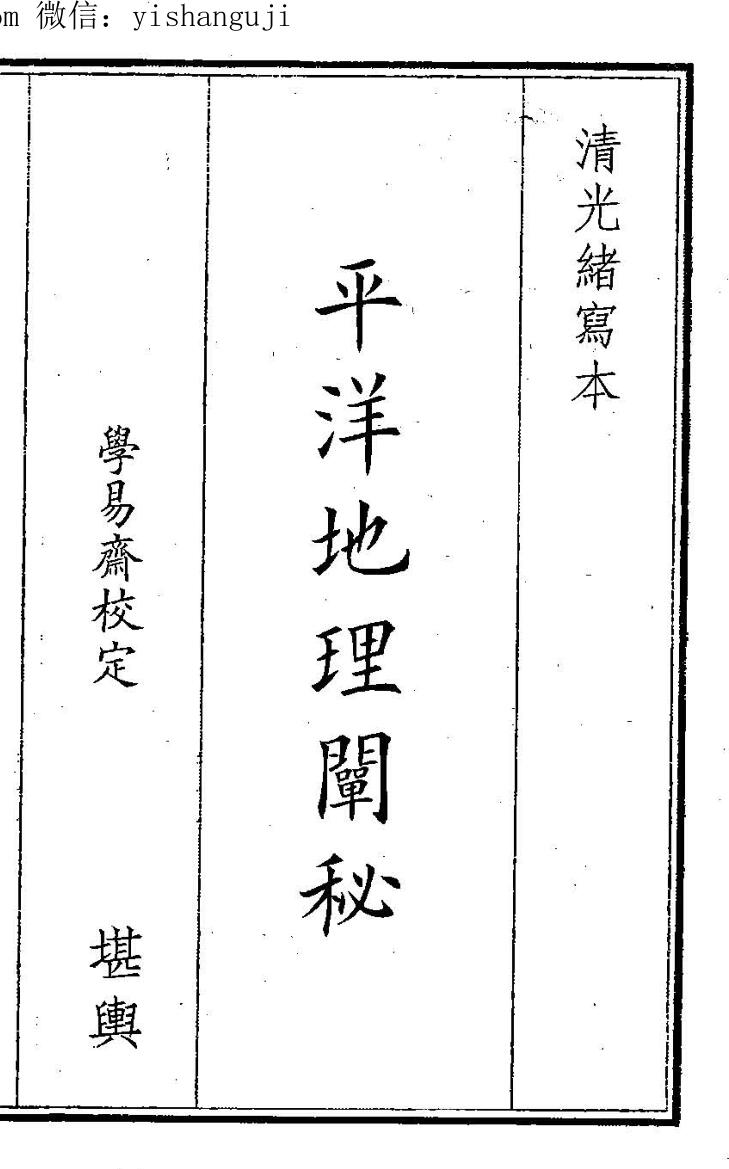 om 微信：yishanguji
清光緒寫本
平洋地理闡秘
學易齋校定
堪輿